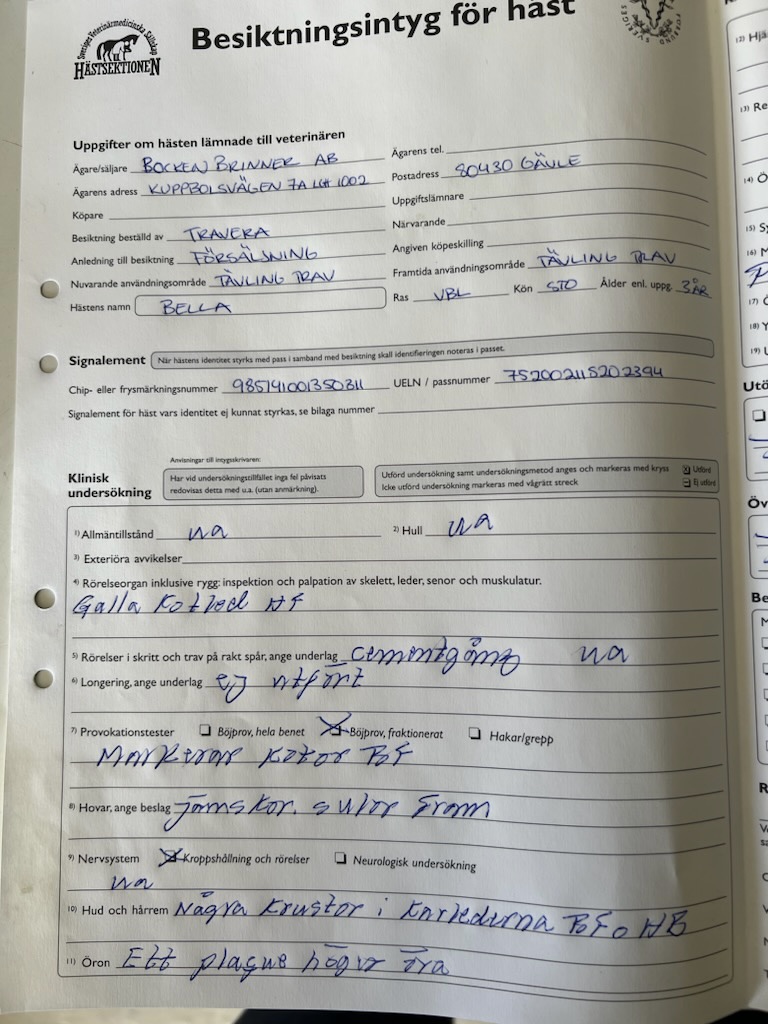 Sveriges Veterinärmedicinska Sällskap
HÄSTSEKTIONEN
Besiktningsintyg för häst
Uppgifter om hästen lämnade till veterinären
Ägare/säljare BOCKEN BRINNER AB
Ägarens tel.
Ägarens adress KUPPBOLSVÄGEN 7A LGH 1002
Postadress 80430 GÄVLE
Köpare
Uppgiftslämnare
Besiktning beställd av TRAVERA
Närvarande
Anledning till besiktning FÖRSÄLJNING
Angiven köpeskilling
Nuvarande användningsområde TÄVLING TRAV
Framtida användningsområde TÄVLING TRAV
Hästens namn BELLA
Ras VBL Kön STO Ålder enl. uppg. 3 ÅR
Signalement När hästens identitet styrks med pass i samband med besiktning skall identifieringen noteras i passet.
Chip- eller frysmärkningsnummer 985141001350311 UELN / passnummer 752002115202394
Signalement för häst vars identitet ej kunnat styrkas, se bilaga nummer
Anvisningar till intygsskrivaren:
Klinisk undersökning
Har vid undersökningstillfället inga fel påvisats
redovisas detta med u.a. (utan anmärkning).
Utförd undersökning samt undersökningsmetod anges och markeras med kryss Utförd
Icke utförd undersökning markeras med vågrätt streck Ej utförd
1) Allmäntillstånd ua 2) Hull ua
3) Exteriöra avvikelser
4) Rörelseorgan inklusive rygg: inspektion och palpation av skelett, leder, senor och muskulatur.
Galla Kotled HF
5) Rörelser i skritt och trav på rakt spår, ange underlag cementgång ua
6) Longering, ange underlag ej utfört
7) Provokationstester Böjprov, hela benet Böjprov, fraktionerat Hakar/grepp
Markerar kotor BF
8) Hovar, ange beslag Jämskor. sulor Fram
9) Nervsystem Kroppshållning och rörelser Neurologisk undersökning
ua
10) Hud och hårrem Några Krustor i Karlederna BF o HB
11) Öron Ett plaque höger öra
12) Hjä
13) Re
14) Ö
15) Sy
16) M
17) C
18) Y
19) U
Utö
Öv
Be